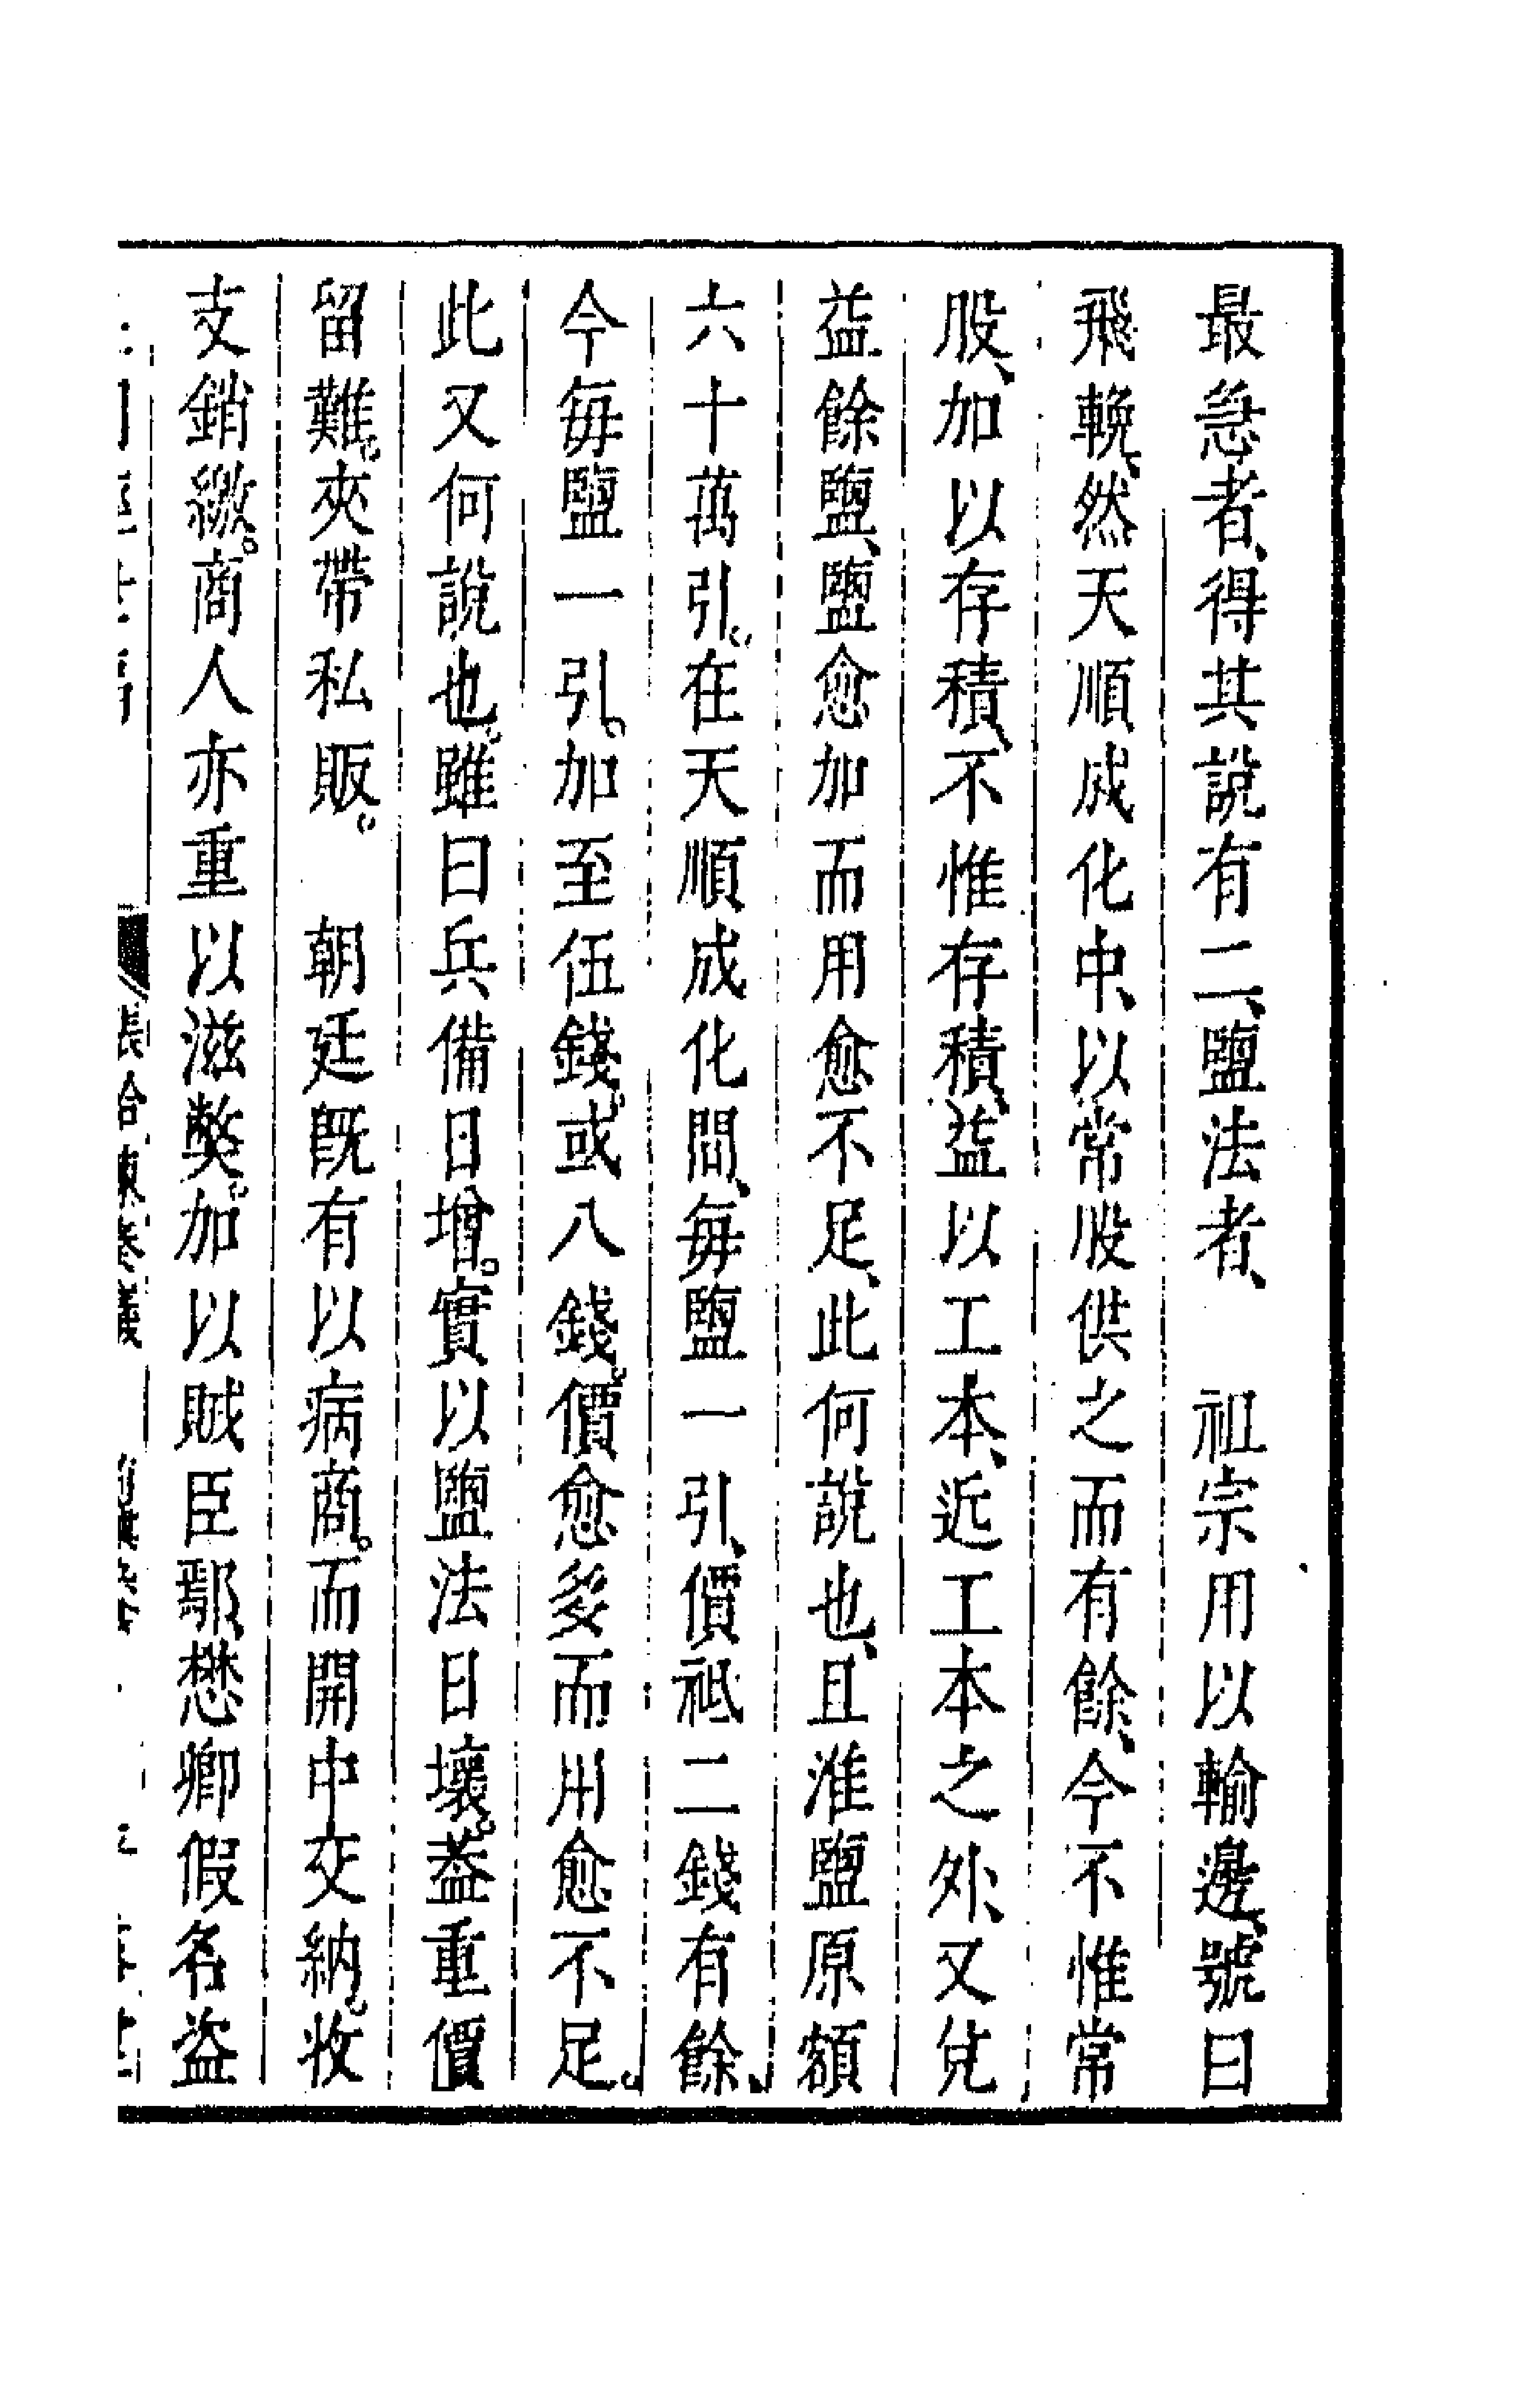 最急者、得其說有二、鹽法者、　祖宗用以輸邊、號曰
飛輓、然天順成化中、以常股供之而有餘、今不惟常
股、加以存積、不惟存積、益以工本、近工本之外、又兌
益餘鹽、鹽愈加而用愈不足、此何說也、且淮鹽原額
六十萬引。在天順成化間、每鹽一引、價祇二錢有餘、
今每鹽一引。加至伍錢。或八錢。價愈多而用愈不足。
此又何說也。雖曰兵備日增。實以鹽法日壞。葢重價
留難。夾帶私販。　朝廷旣有以病商。而開中交納。收
支銷繳。商人亦重以滋獘。加以賊臣鄢懋卿假名盜